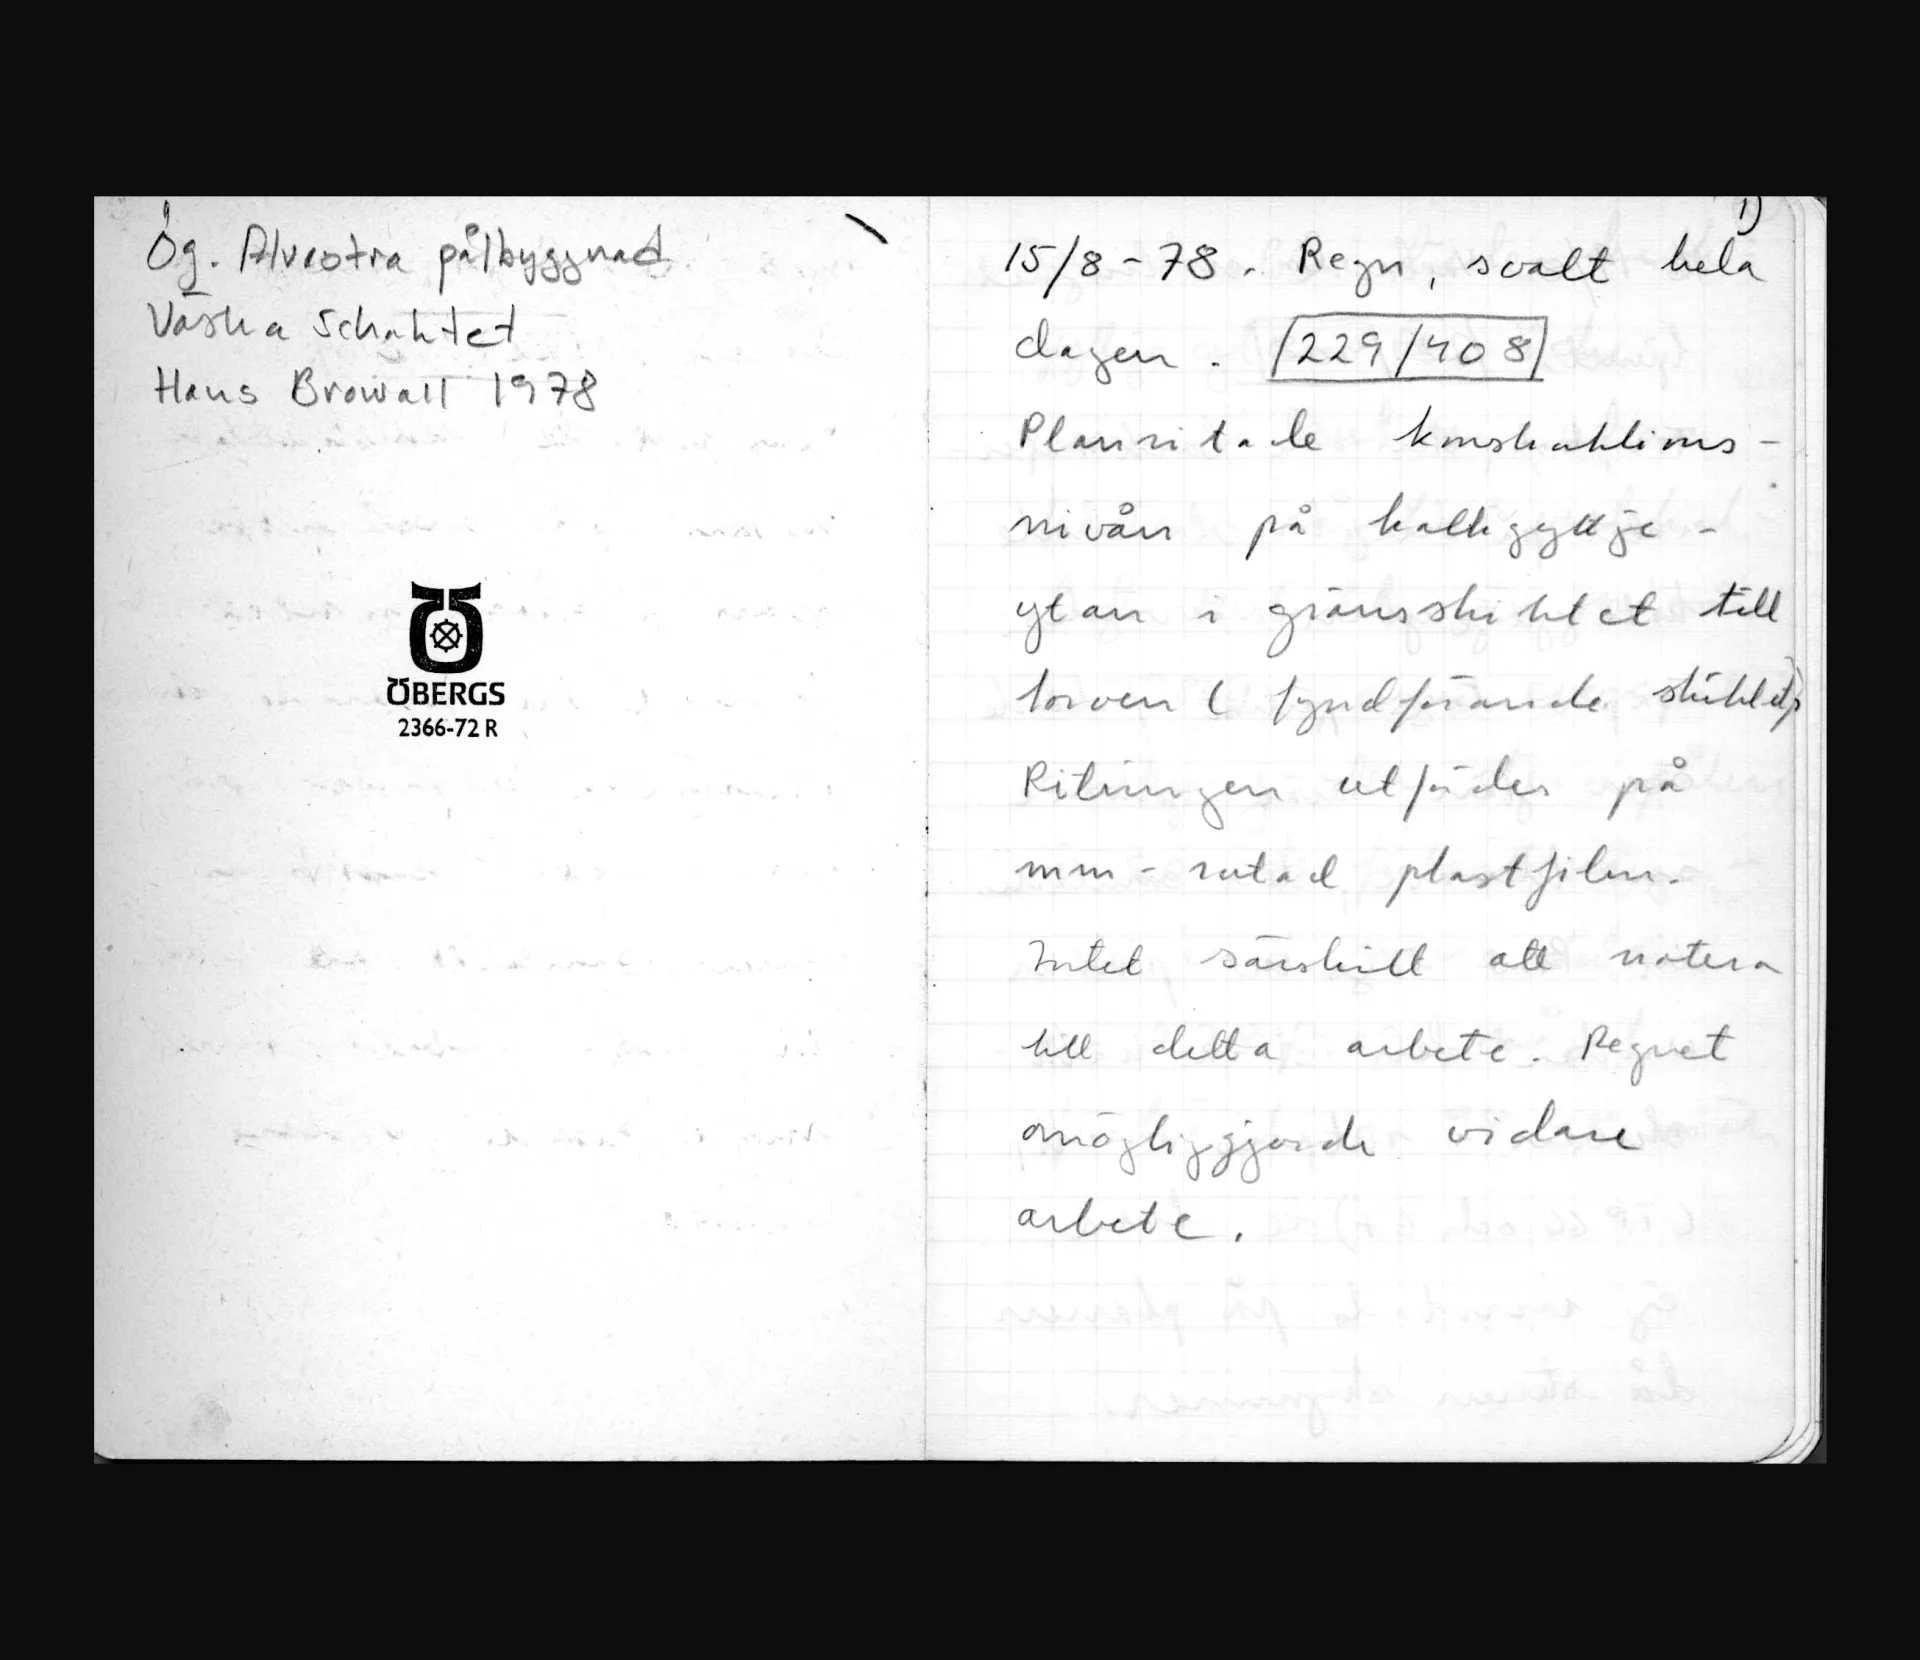 Ög. Alvastra pålbyggnad
Västra Schaktet
Hans Browall 1978
ÖBERGS
2366-72 R
1)
15/8-78. Regn, svalt hela
dagen. /229/408/
Planritade konstruktions-
nivån på kalkgyttje-
ytan i gränsskiktet till
torven (fyndförande skiktet).
Ritningen utfördes på
mm-rutad plastfilm.
Intet särskilt att notera
till detta arbete. Regnet
omöjliggjorde vidare
arbete.